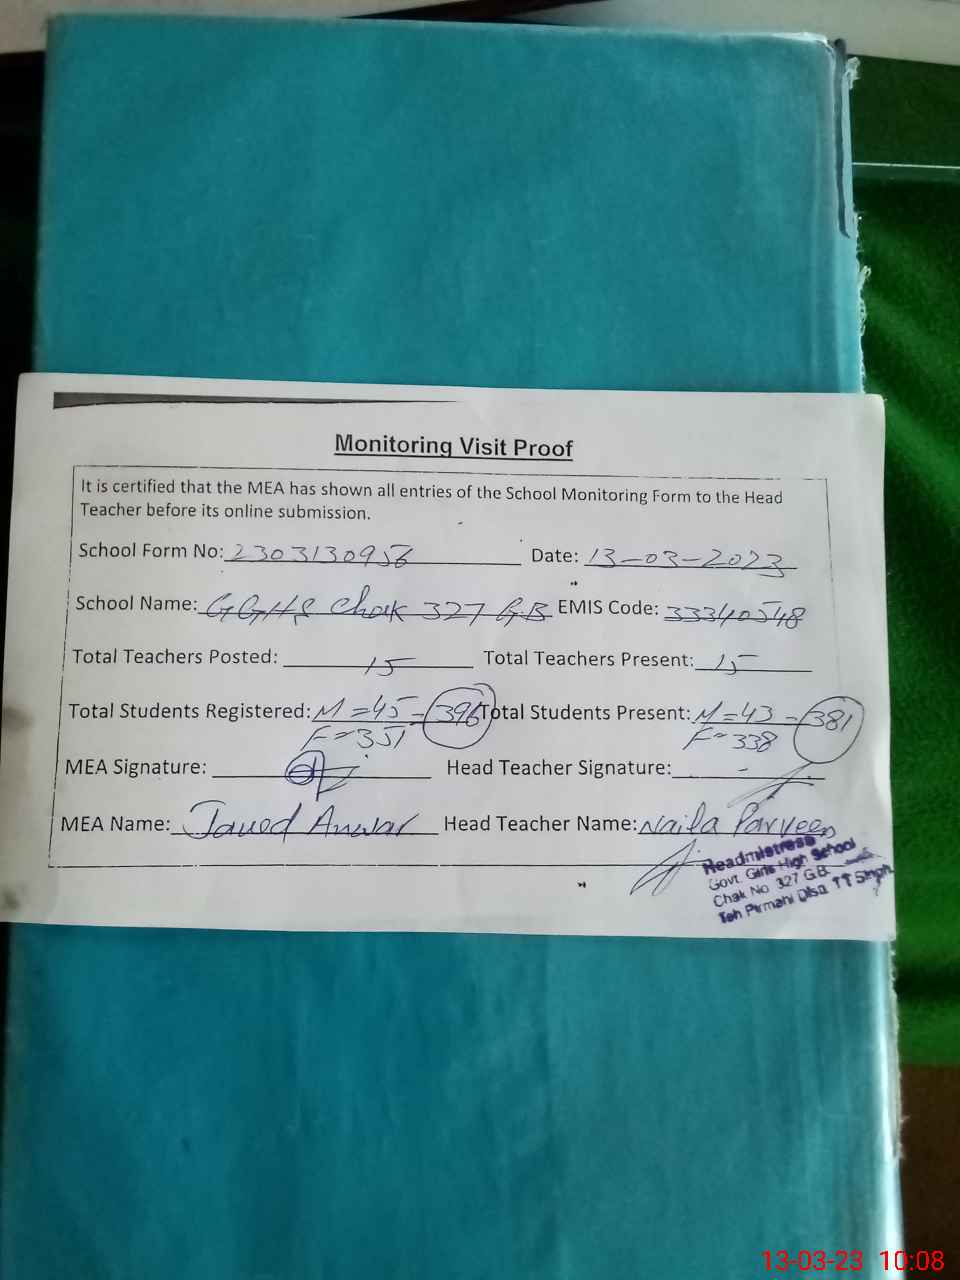 Monitoring Visit Proof
It is certified that the MEA has shown all entries of the School Monitoring Form to the Head
Teacher before its online submission.
School Form No: 2303130956 Date: 13-03-2023
School Name: GGHS Chak 327 G.B EMIS Code: 33340548
Total Teachers Posted: 15 Total Teachers Present: 15
Total Students Registered: M=45 - 396 Total Students Present: M=43 - 381
F=351 F=338
MEA Signature: Head Teacher Signature:
MEA Name: Javed Anwar Head Teacher Name: Naila Parveen
Headmistress
Govt. Girls High School
Chak No. 327 G.B.
13-03-23 10:08